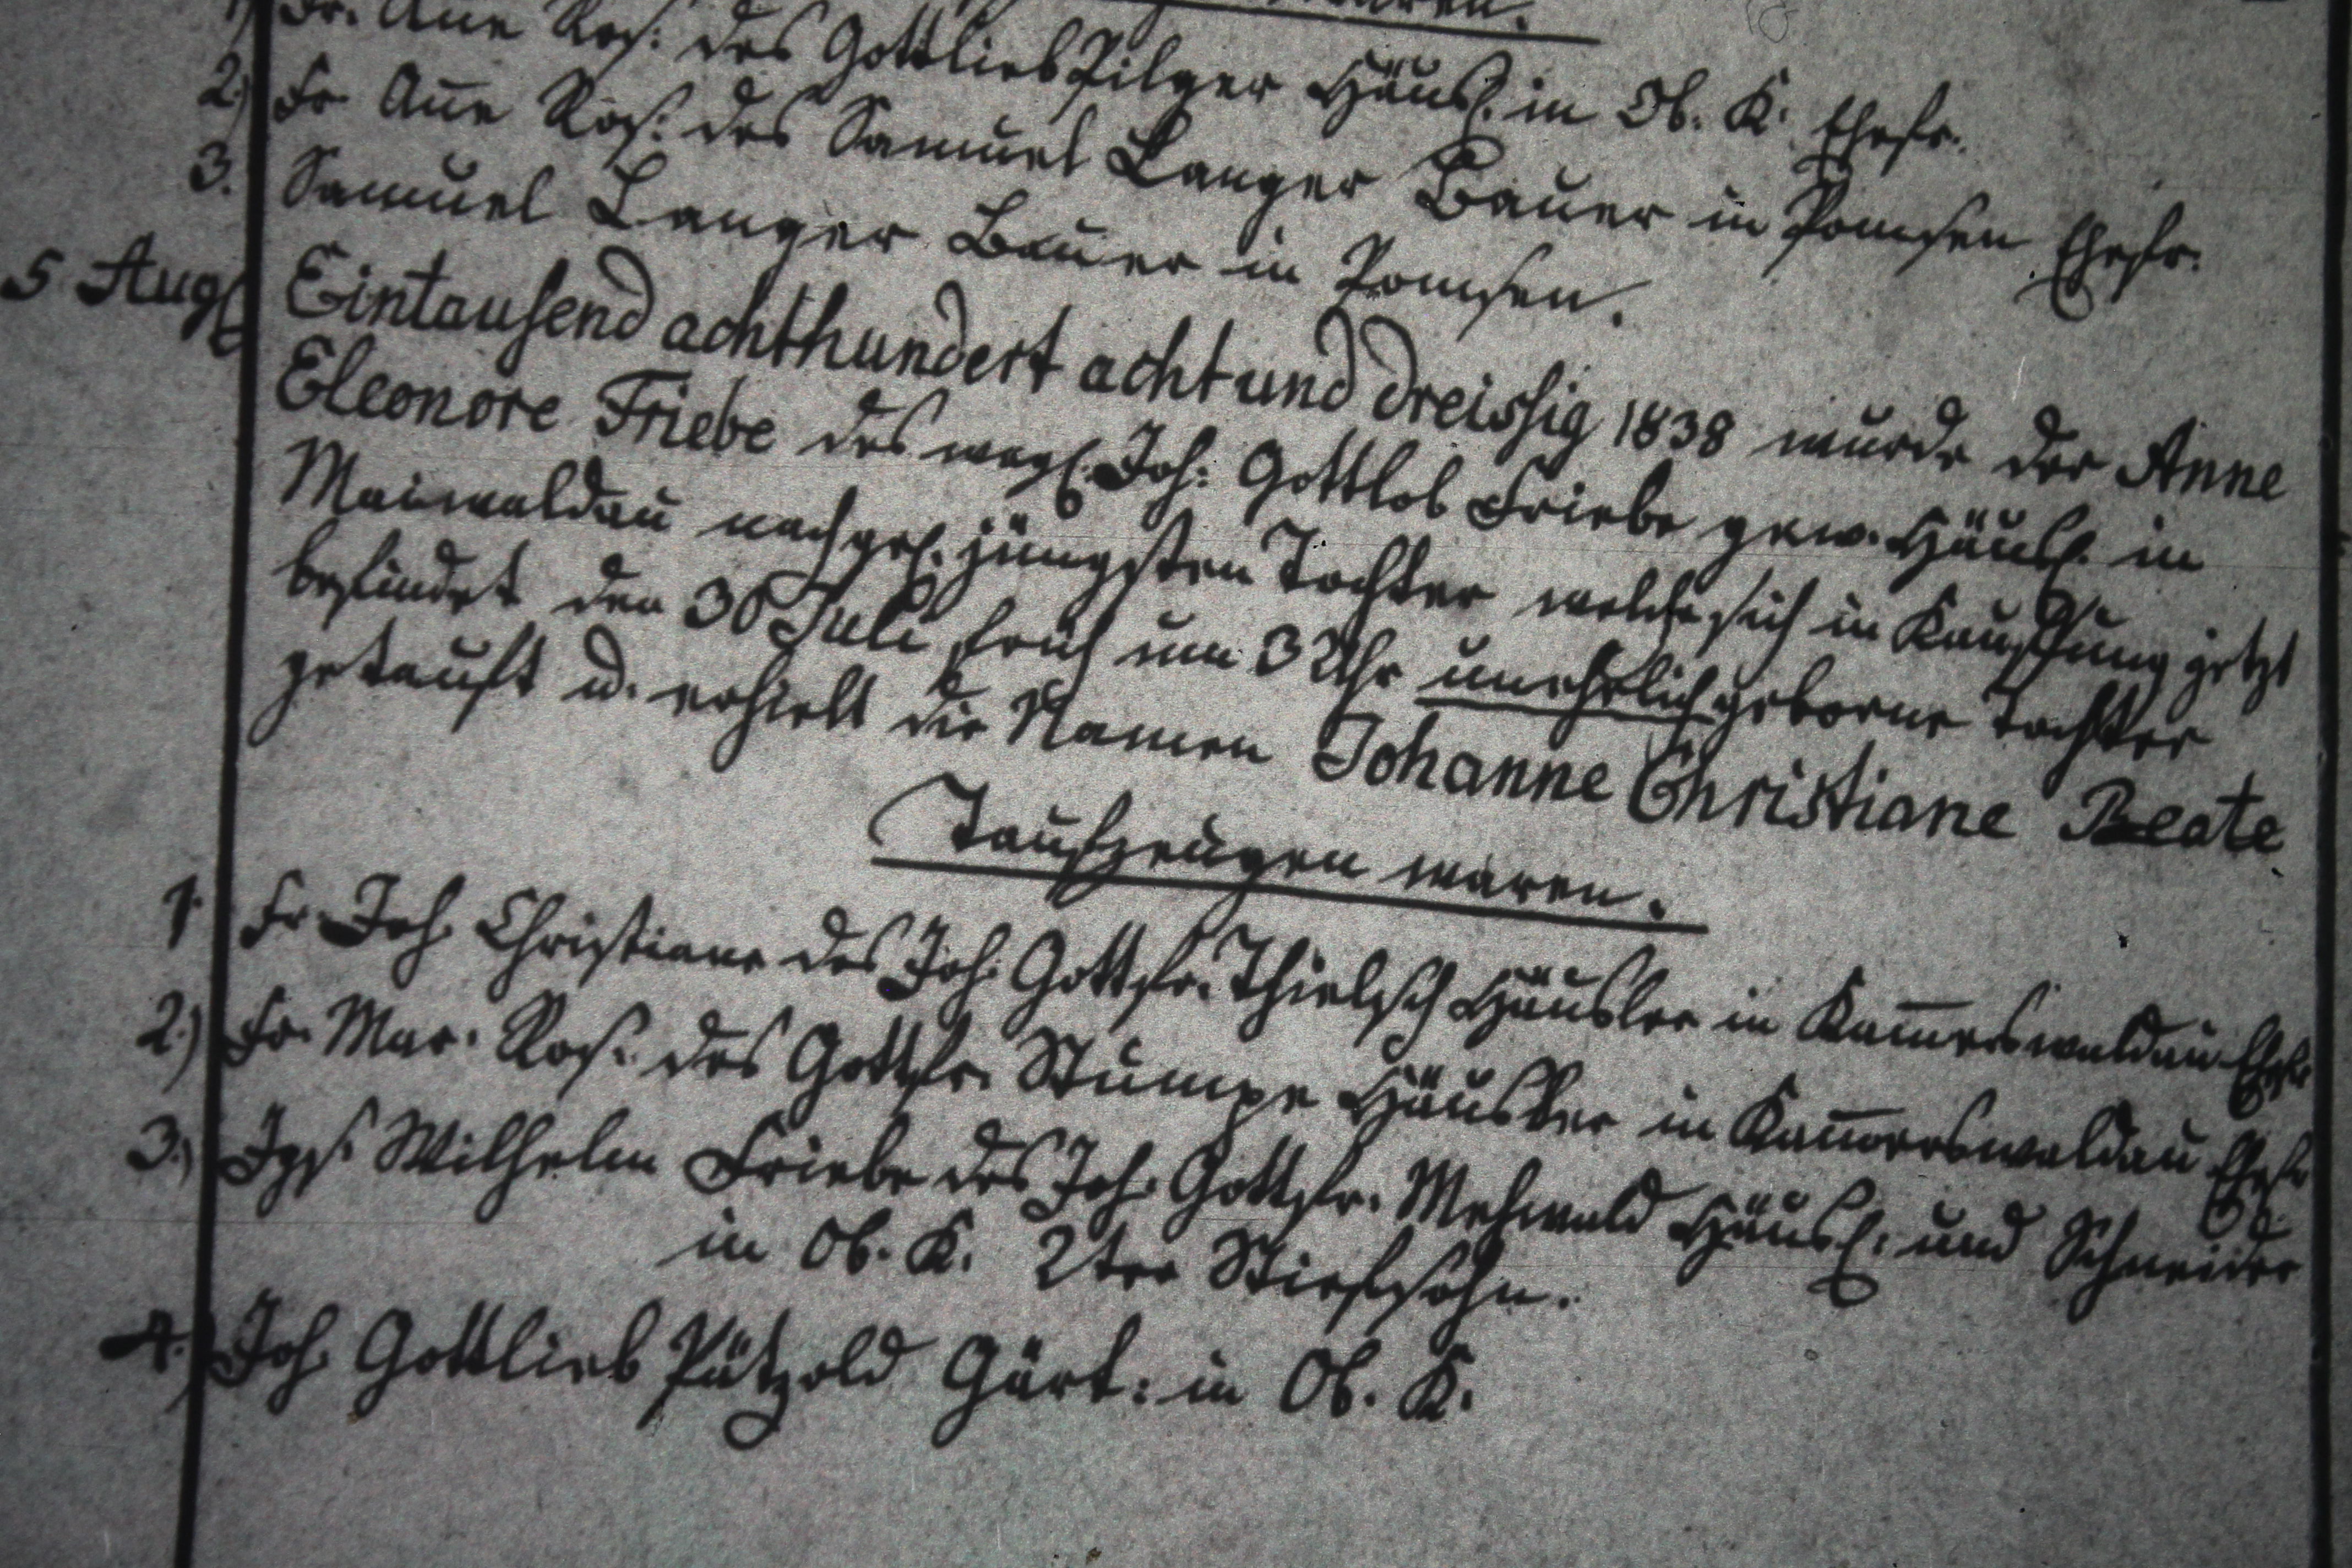 waren.
1) Fr. An̄e Ros: des Gottlieb Pilger Häusl. in Ob. K. Ehefr.
2.) Fr. An̄e Ros: des Samuel Langer Bauer in Pomsen Ehefr.
3. Samuel Langer Bauer in Pomsen.
5 Aug Eintausend achthundert acht und dreissig 1838 wurde der Anne
Eleonore Friebe des weyl. Joh: Gottlob Friebe gew. Häusl. in
Maiwaldau nachgel. jüngsten Tochter welche sich in Kauffung jetzt
befindet den 30 Juli früh um 3 Uhr unehrlich geborne Tochter
getauft u. erhielt die Namen Johanne Christiane Beate
Taufzeugen waren.
1. Fr. Joh. Christiane des Joh. Gottfr. Thielsch Häusler in Kam̄erswaldau Ehefr
2.) Fr. Mar. Ros. des Gottfr. Stumpe Häusler in Kam̄erswaldau Ehefr
3.) Jgs. Wilhelm Friebe des Joh. Gottfr. Mehwald Häusl. und Schneider
in Ob. K. 2ter Stiefsohn.
4.) Joh. Gottlieb Pätzold Gärt: in Ob. K.